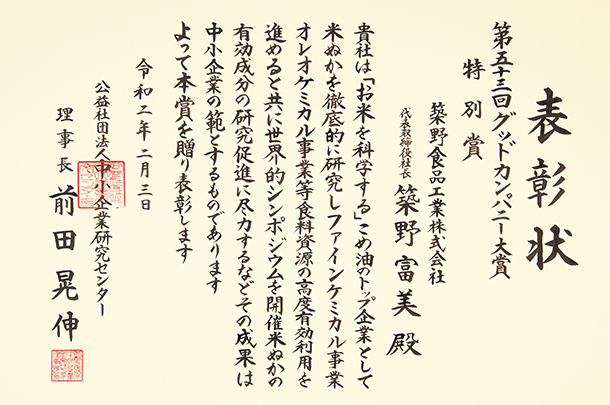 表彰状
第五十三回グッドカンパニー大賞
特別賞
築野食品工業株式会社
代表取締役社長 築野富美殿
貴社は「お米を科学する」こめ油のトップ企業として
米ぬかを徹底的に研究しファインケミカル事業
オレオケミカル事業等食料資源の高度有効利用を
進めると共に世界的シンポジウムを開催米ぬかの
有効成分の研究促進に尽力するなどその成果は
中小企業の範とするものであります
よって本賞を贈り表彰します
令和二年二月三日
公益社団法人中小企業研究センター
理事長 前田晃伸